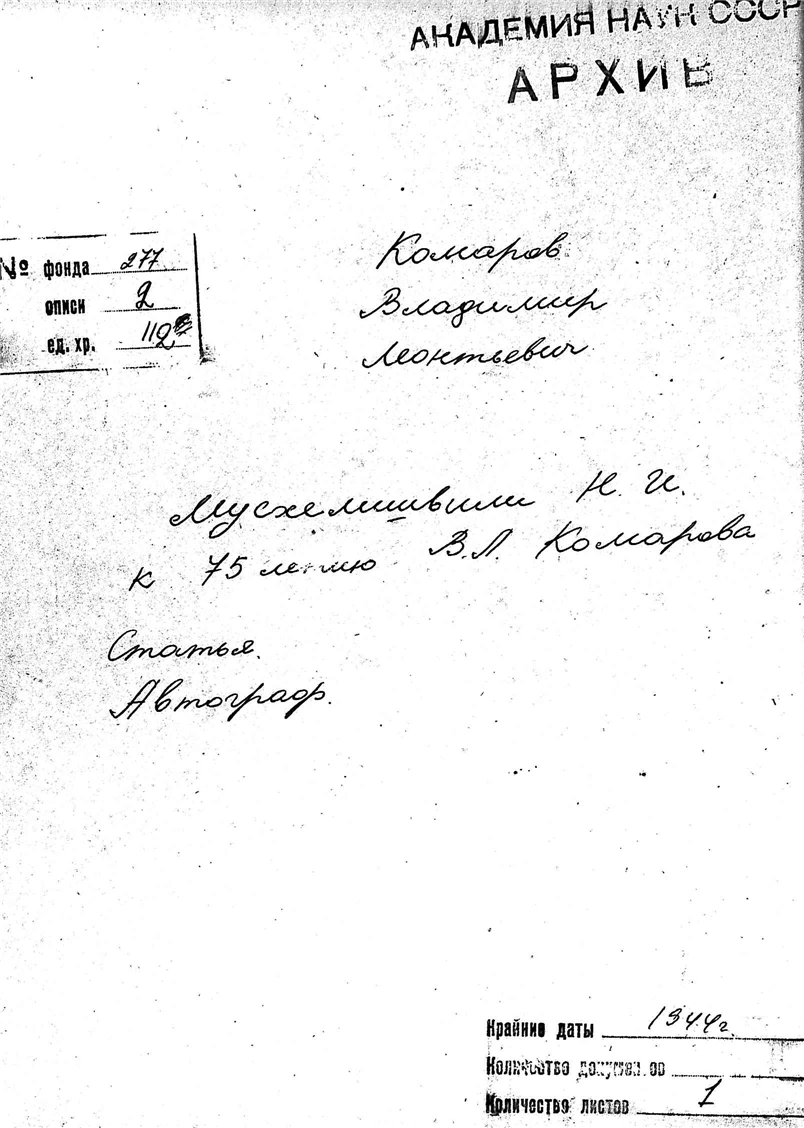 АКАДЕМИЯ НАУК СССР
АРХИВ
№ фонда 277
описи 2
ед. хр. 112
Комаров
Владимир
Леонтьевич
Мусхелишвили Н. И.
к 75 летию В.Л. Комарова
Статья.
Автограф.
Крайние даты 1944 г.
Количество документов
Количество листов 1